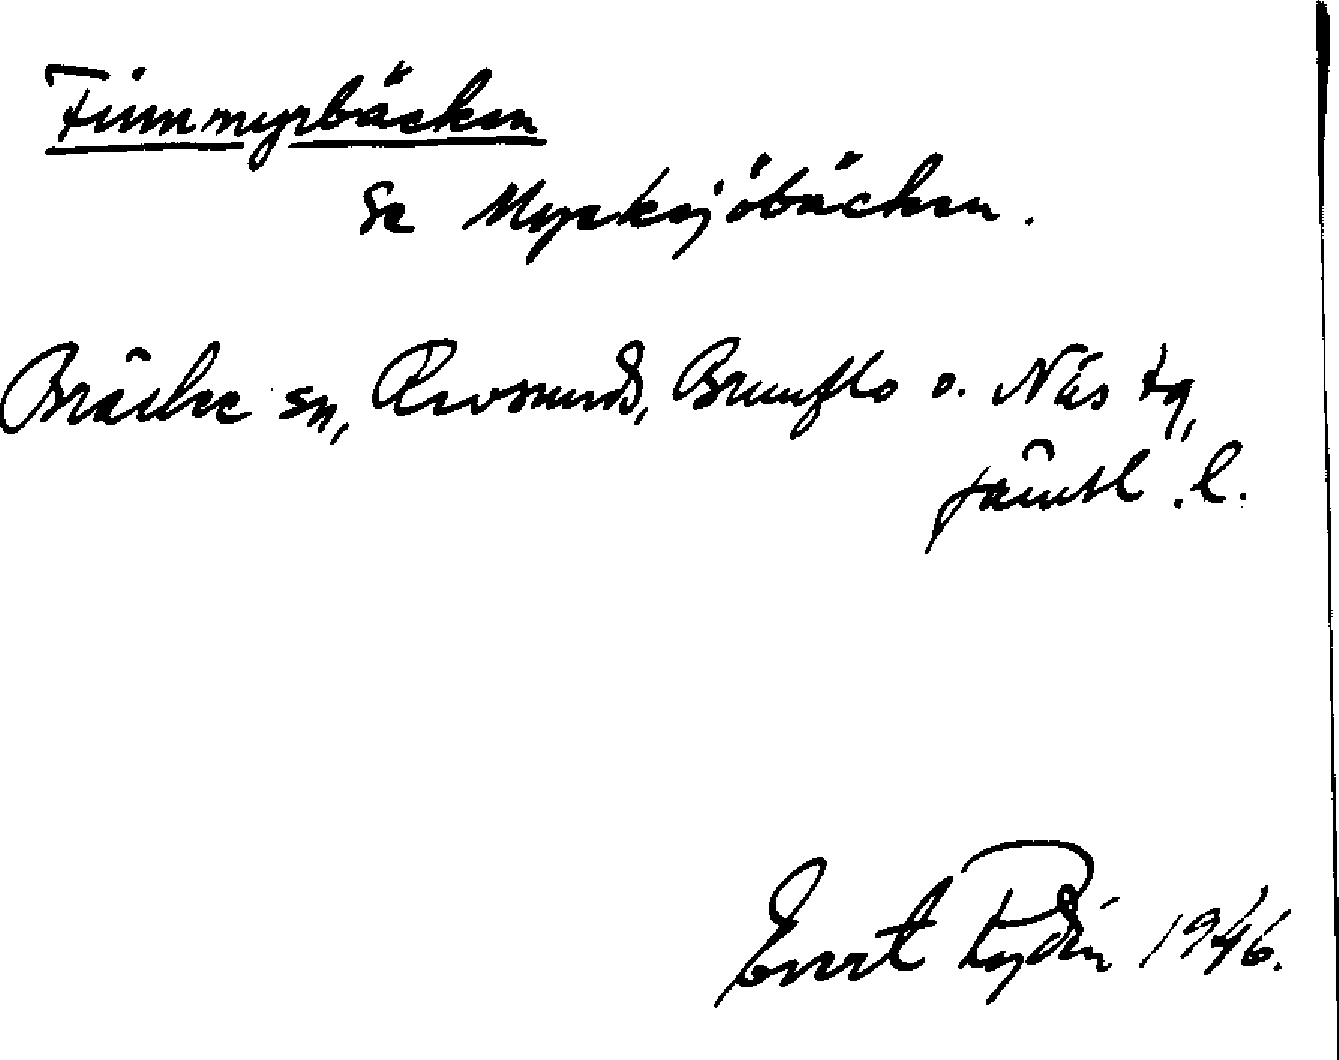 Finnmyrbäcken
Se Myrksjöbäcken.
Bräcke sn, Revsunds, Brunflo o. Näs tg,
Jämtl. l.
Evert Rydin 1946.